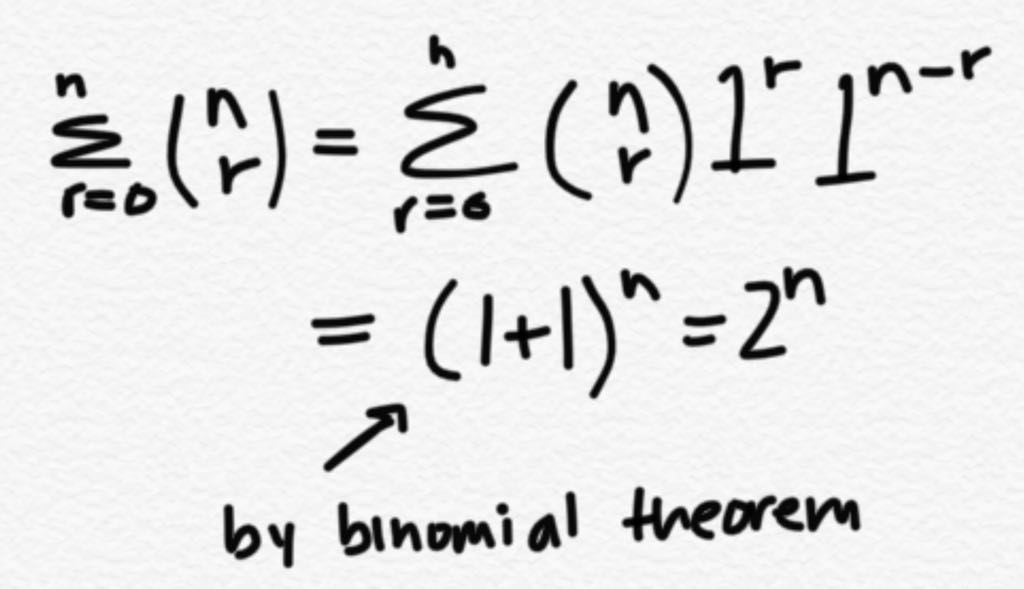 n∑r=0 (n r) = n∑r=0 (n r) 1^r 1^{n-r}
= (1+1)^n = 2^n
by binomial theorem